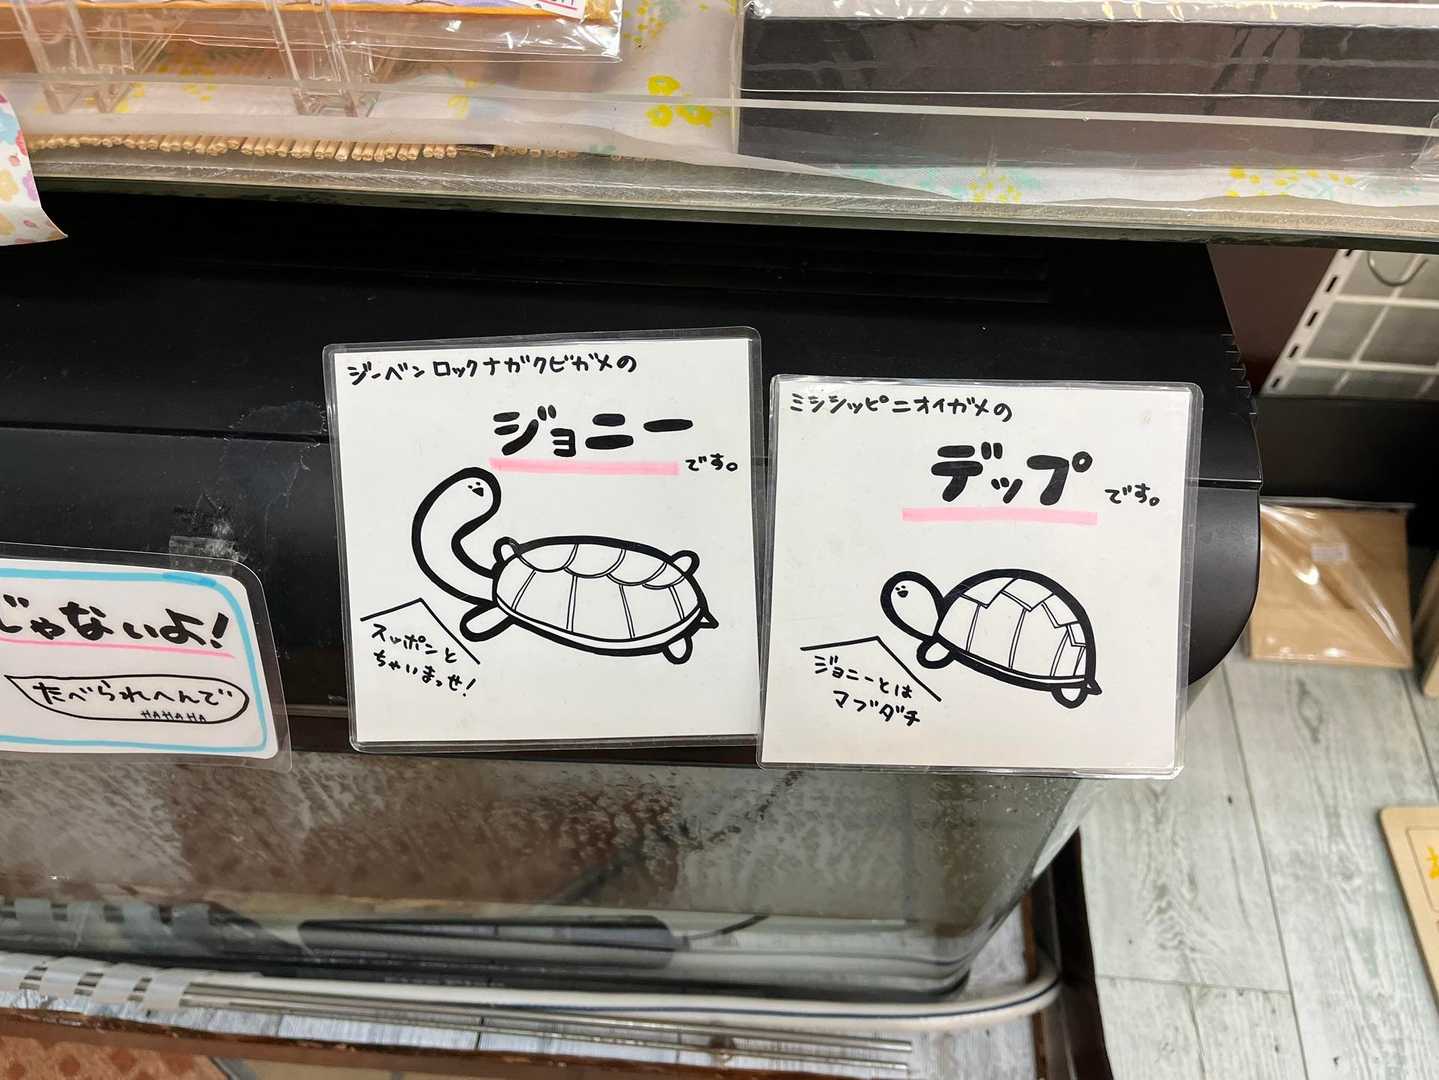 ジーベンロックナガクビガメの
ジョニー
です。
スッポンと
ちゃいまっせ!
ミシシッピニオイガメの
デップ
です。
ジョニーとは
マブダチ
じゃないよ!
たべられへんで
HAHAHA